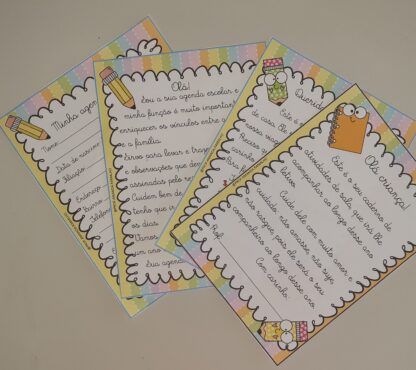 Minha agen
Nome:
Data de nascime
Filiação:
Endereço:
Bairro:
Telefone
Olá!
Sou a sua agenda escolar e
minha função é muito importante
enriquecer os vínculos entre a
e a família.
Sirvo para levar e traze
e observações que den
assinadas pelo re
Cuidem bem de
tenho que ir
os dias.
Vamos
um ano
Sua agenda
Querida
Este é
de casa. Ele
nossa
Olá criança!
Este é o seu caderno de
atividades de sala, que irá lhe
acompanhar ao longo desse ano
letivo.
Cuide dele com muito amor e
cuidado, não amasse, não suje,
não rasgue, pois ele será o seu
companheiro ao longo desse ano.
Com carinho:
Prof.